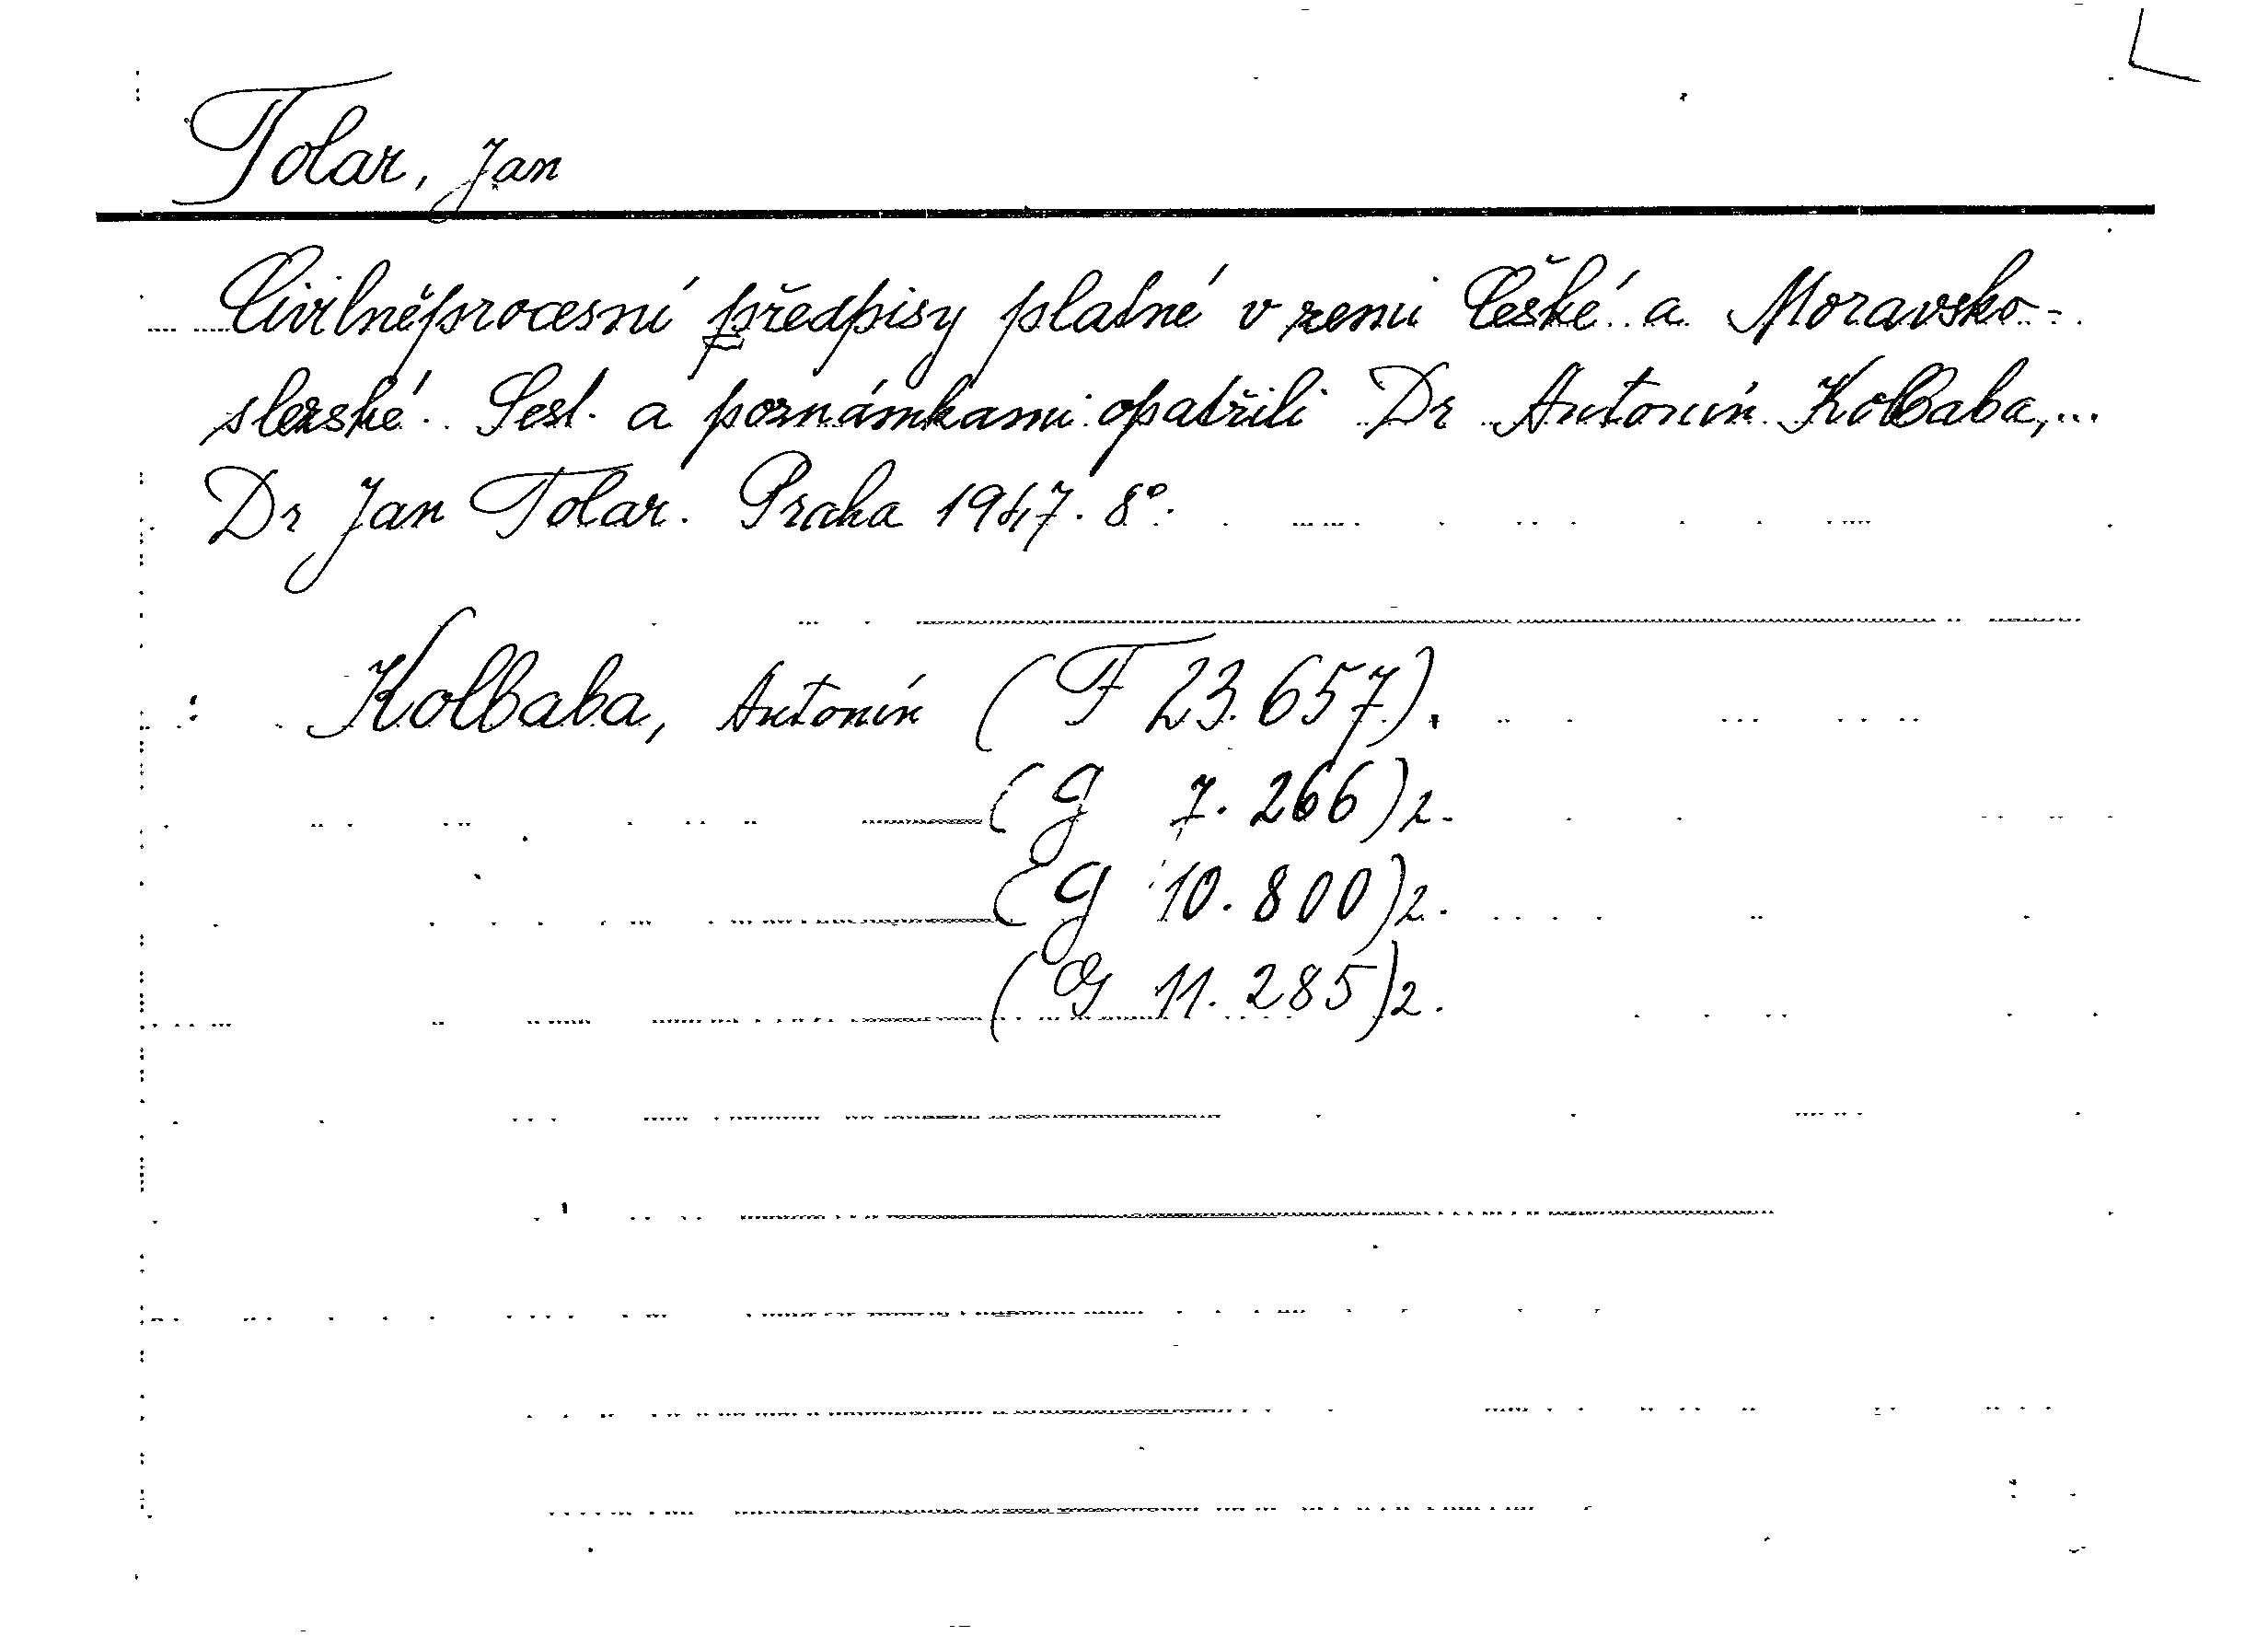 Tolar, Jan
Civilněprocesní předpisy platné v zemi České a Moravsko-
slezské. Sest. a poznámkami opatřili Dr Antonín Kolbaba,...
Dr Jan Tolar. Praha 1947. 8°.
Kolbaba, Antonín (F 23.657).
(G 7.266)2.
(G 10.800)2.
(G 11.285)2.